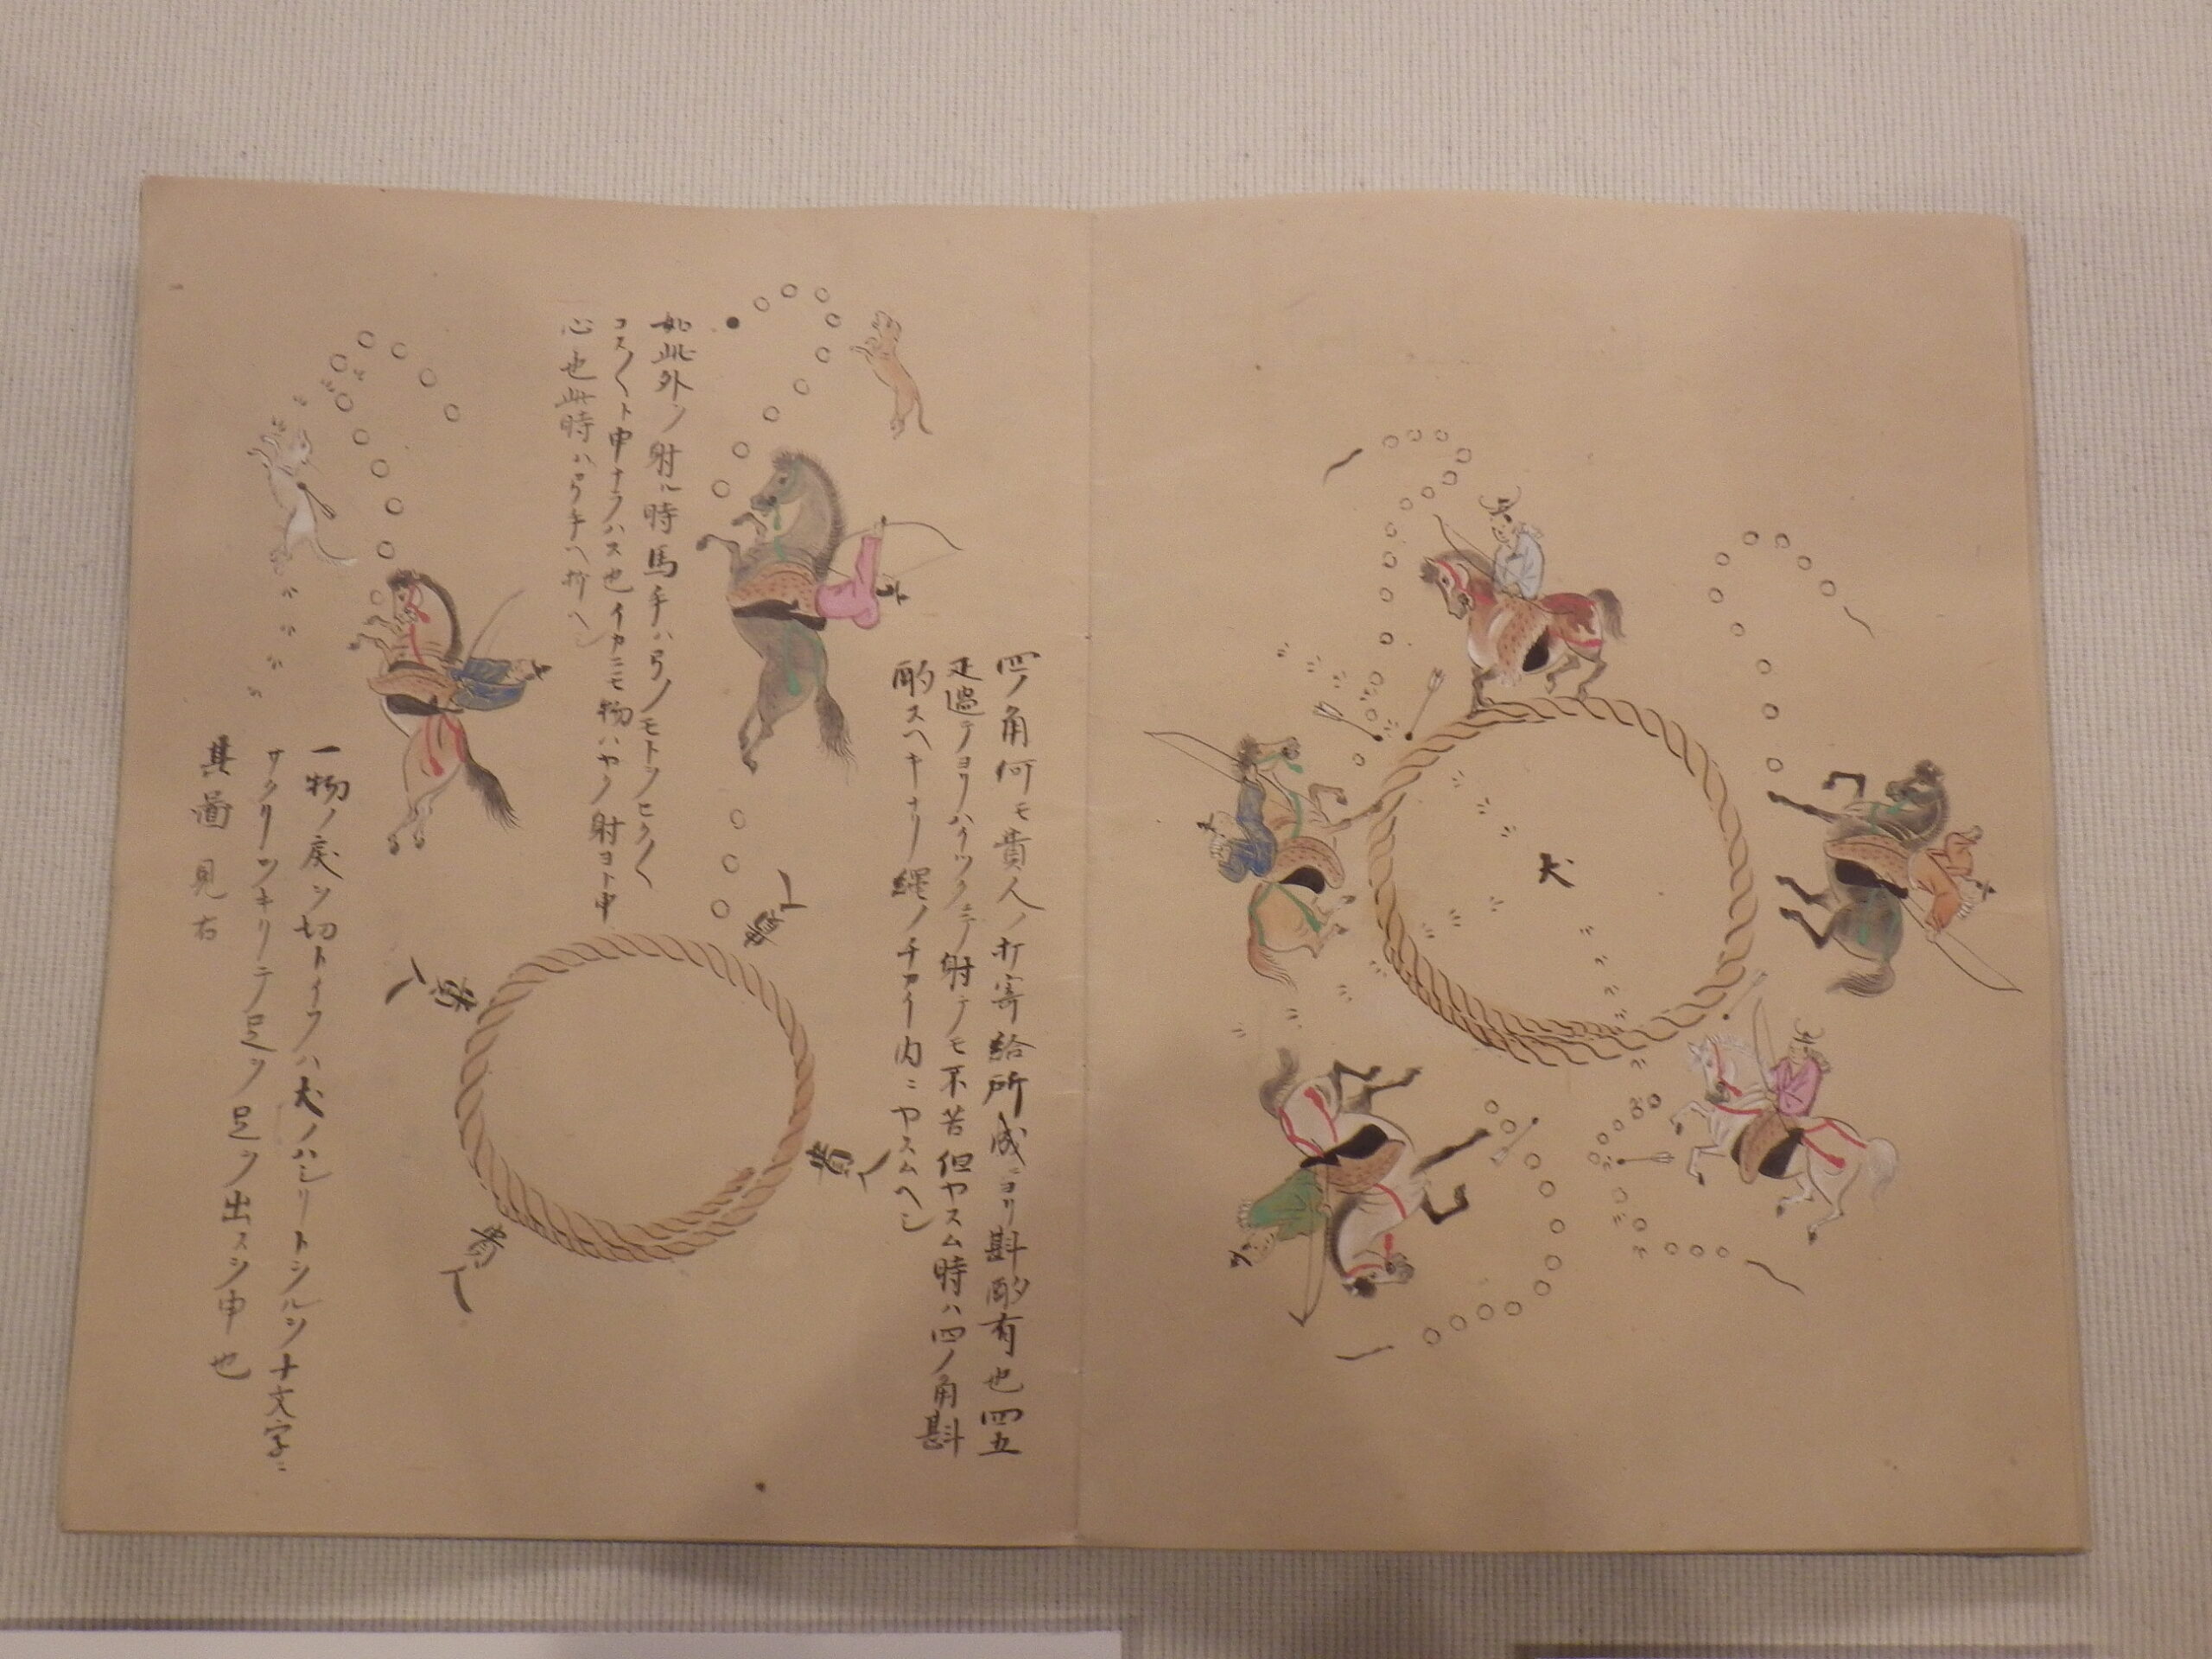 犬
四ノ角何モ貴人ノ打寄給所成ヨリ斟酌有也四五
疋過テヨリハイツクニテ射テモ不苦但ヤスム時ハ四ノ角斟
酌スヘキナリ縄ノチカイ内ニヤスムヘシ
貴人
貴人
貴人
貴人
如此外ノ射ル時馬手ハ弓ノモトヲヒクく
コスくト申ナラハス也イカニモ物ハヤノ射ヨト申
心也此時ハ弓手ヘ折ヘシ
一物ノ戻ヲ切トイフハ犬ノハシリトシルシヲ十文字ニ
サクリヲキリテ足ヲ足ヲ出スヲ申也
其圖見右